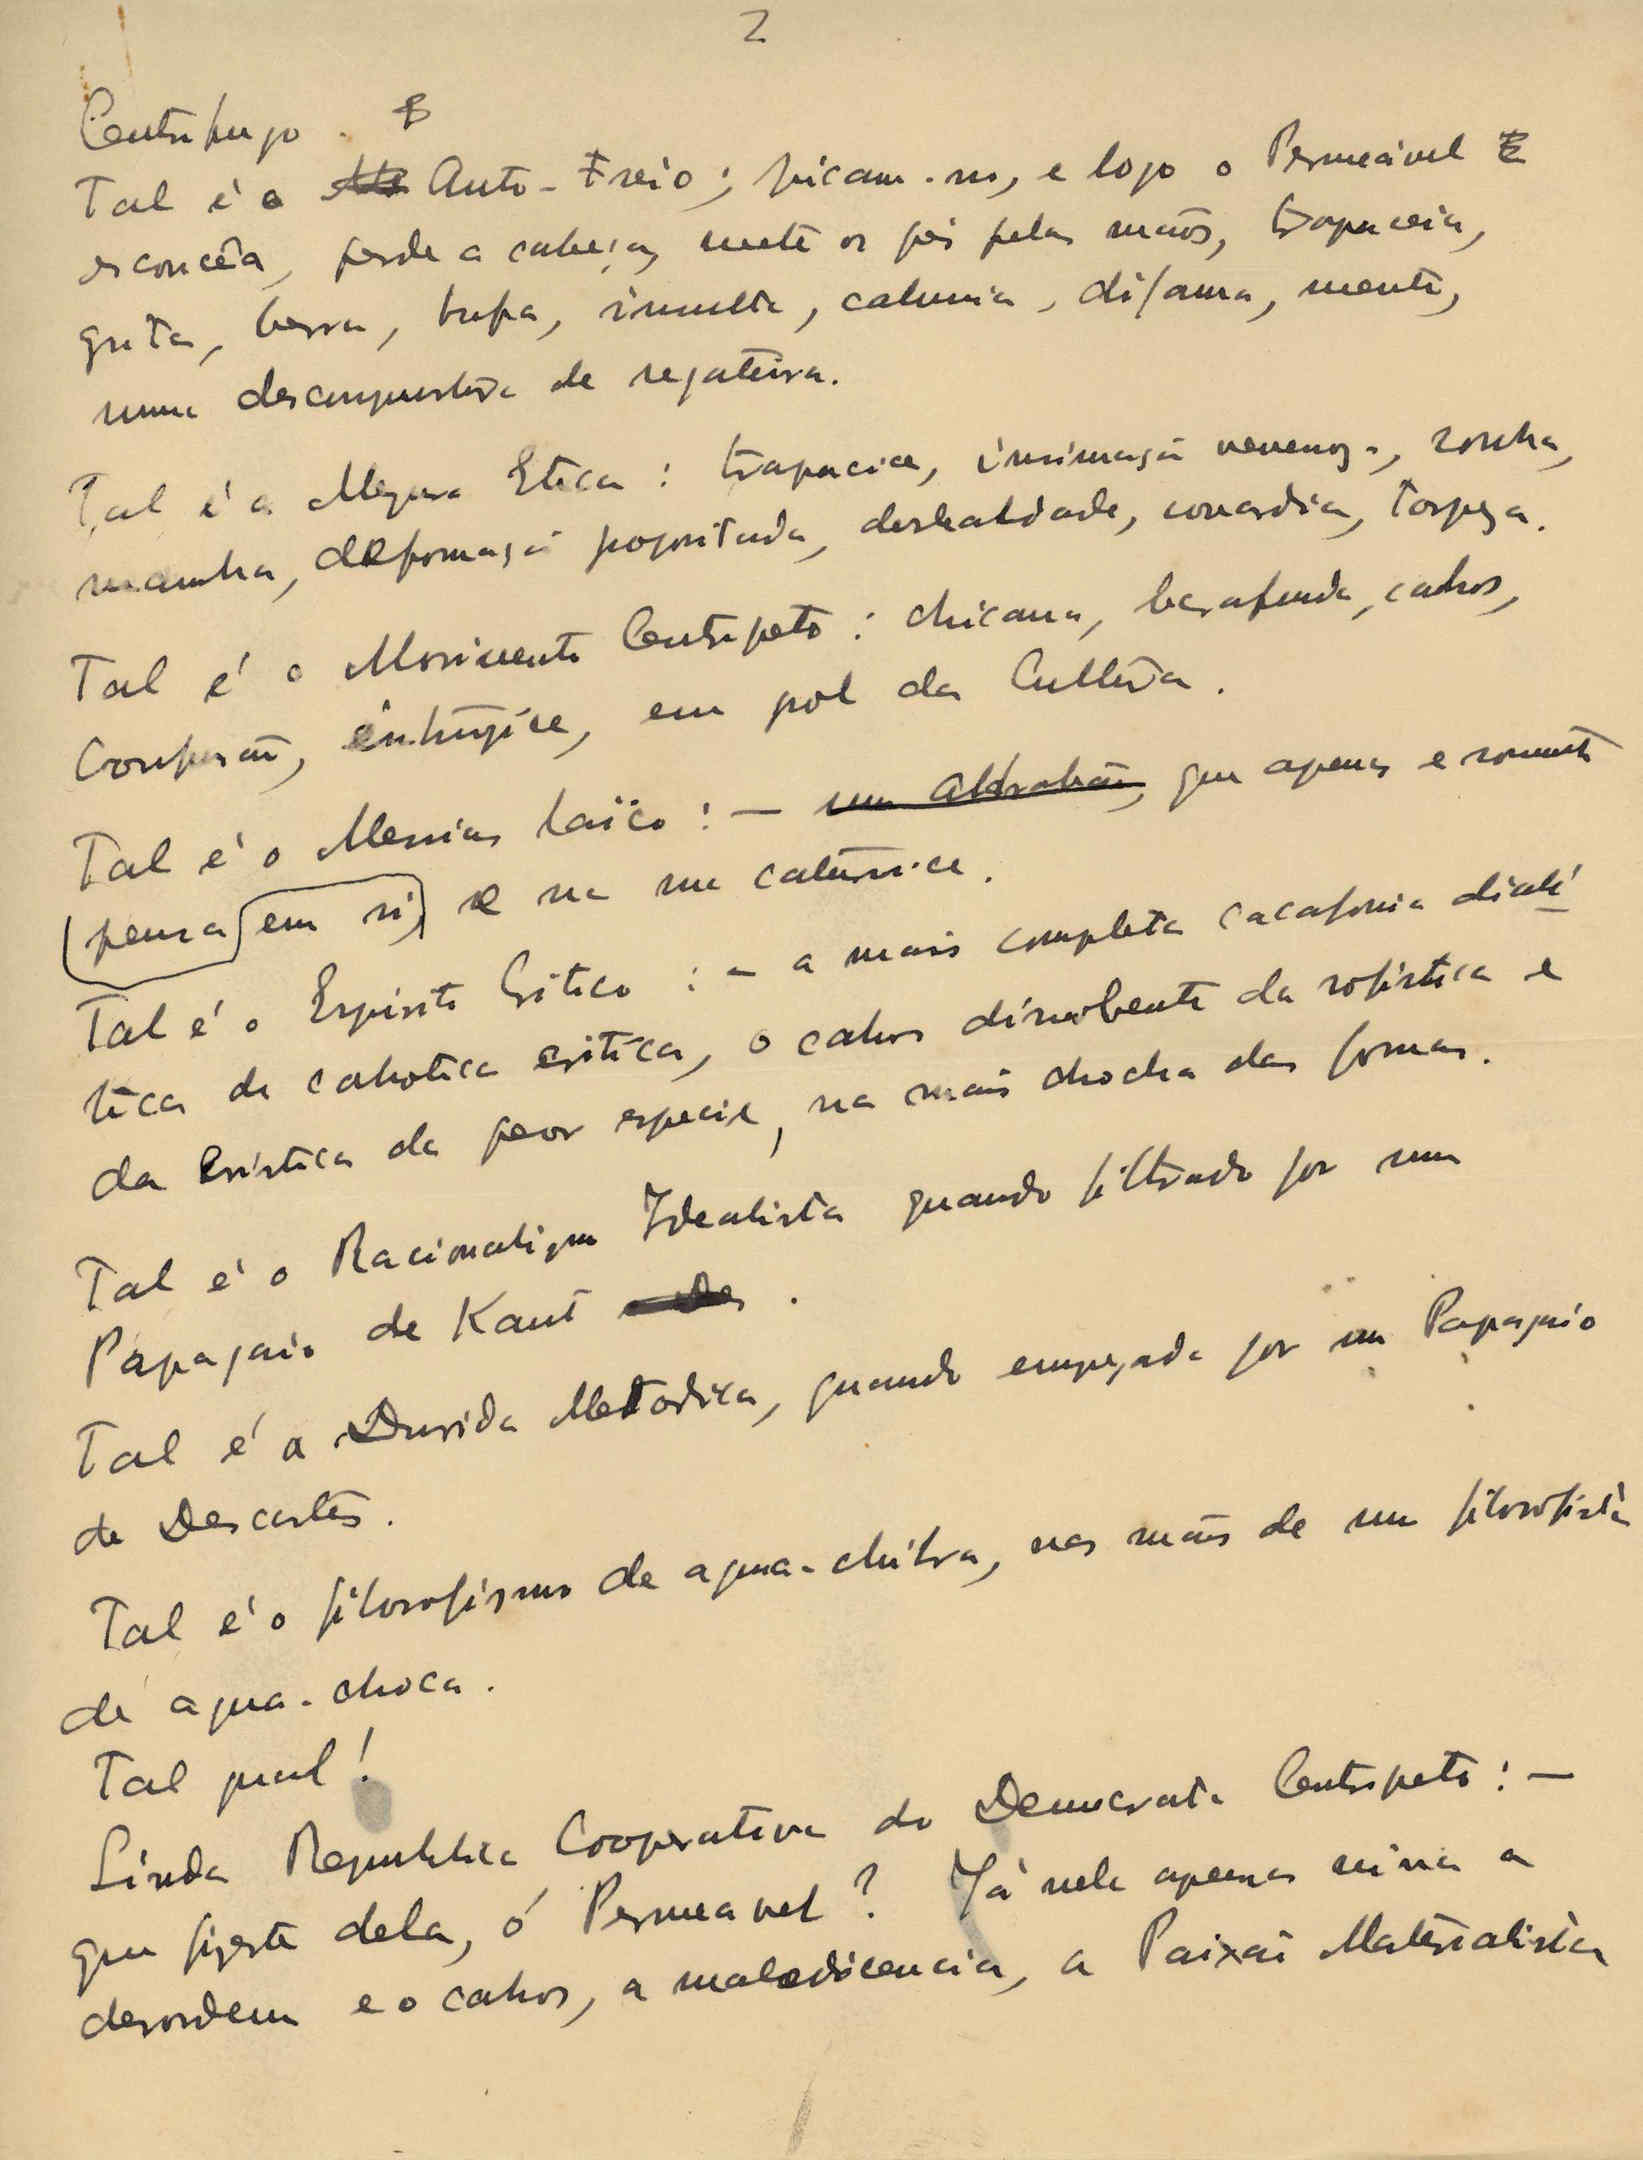 2
Centrifugo.
Tal é o Auto-Freio; picam-no, e logo o Permeável
escouceia, perde a cabeça, mete os pés pelas mãos, trapaceia,
grita, berra, bufa, insulta, calunia, difama, mente,
numa descompostura de regateira.
Tal é a Magna Etica: trapacice, insinuação venenosa, ronha,
manha, deformação propositada, deslealdade, covardia, torpeza.
Tal é o Movimento Centripeto: chicana, barafunda, cahos,
Confusão, intrujice, em pol da Cultura.
Tal é o Messias laïco: — um aldrabão, que apenas e somente
pensa em si, e na sua
Tal é o Espirito Critico: - a mais completa cacafonia dialé
tica de cahotica critica, o cahos dissolvente da sofistica e
da Erística da peor especie, na mais chocha das formas.
Tal é o Racionalismo Idealista quando filtrado por um
Papagaio de Kant.
Tal é a Duvida Metodica, quando empregada por um Papagaio
de Descartes.
Tal é o filosofismo de agua-chilra, nas mãos de um filosofista
de agua-choca.
Tal qual!
Linda Republica Cooperativa do Democrata Centripeto: —
que fizeste dela, ó Permeavel? Já nela apenas reina a
desordem e o cahos, a maledicencia, a Paixão Materialista